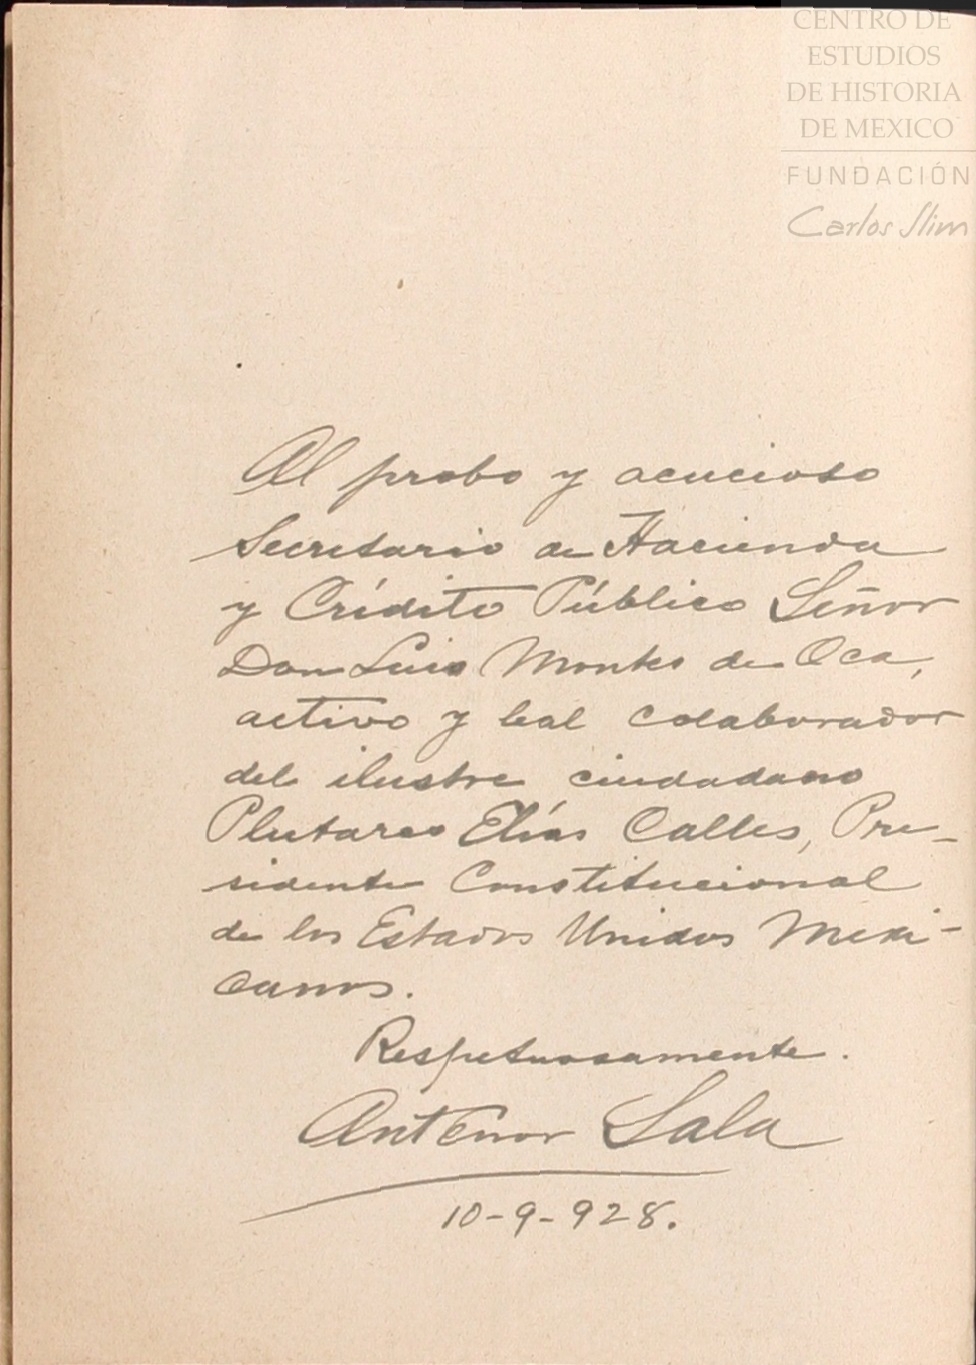 CENTRO DE
ESTUDIOS
DE HISTORIA
DE MEXICO
FUNDACIÓN
Carlos Slim
Al probo y acucioso
Secretario de Hacienda
y Crédito Público Señor
Don Luis Montes de Oca,
activo y leal colaborador
del ilustre ciudadano
Plutarco Elías Calles, Pre-
sidente Constitucional
de los Estados Unidos Mexi-
canos.
Respetuosamente.
Antenor Sala
10-9-928.